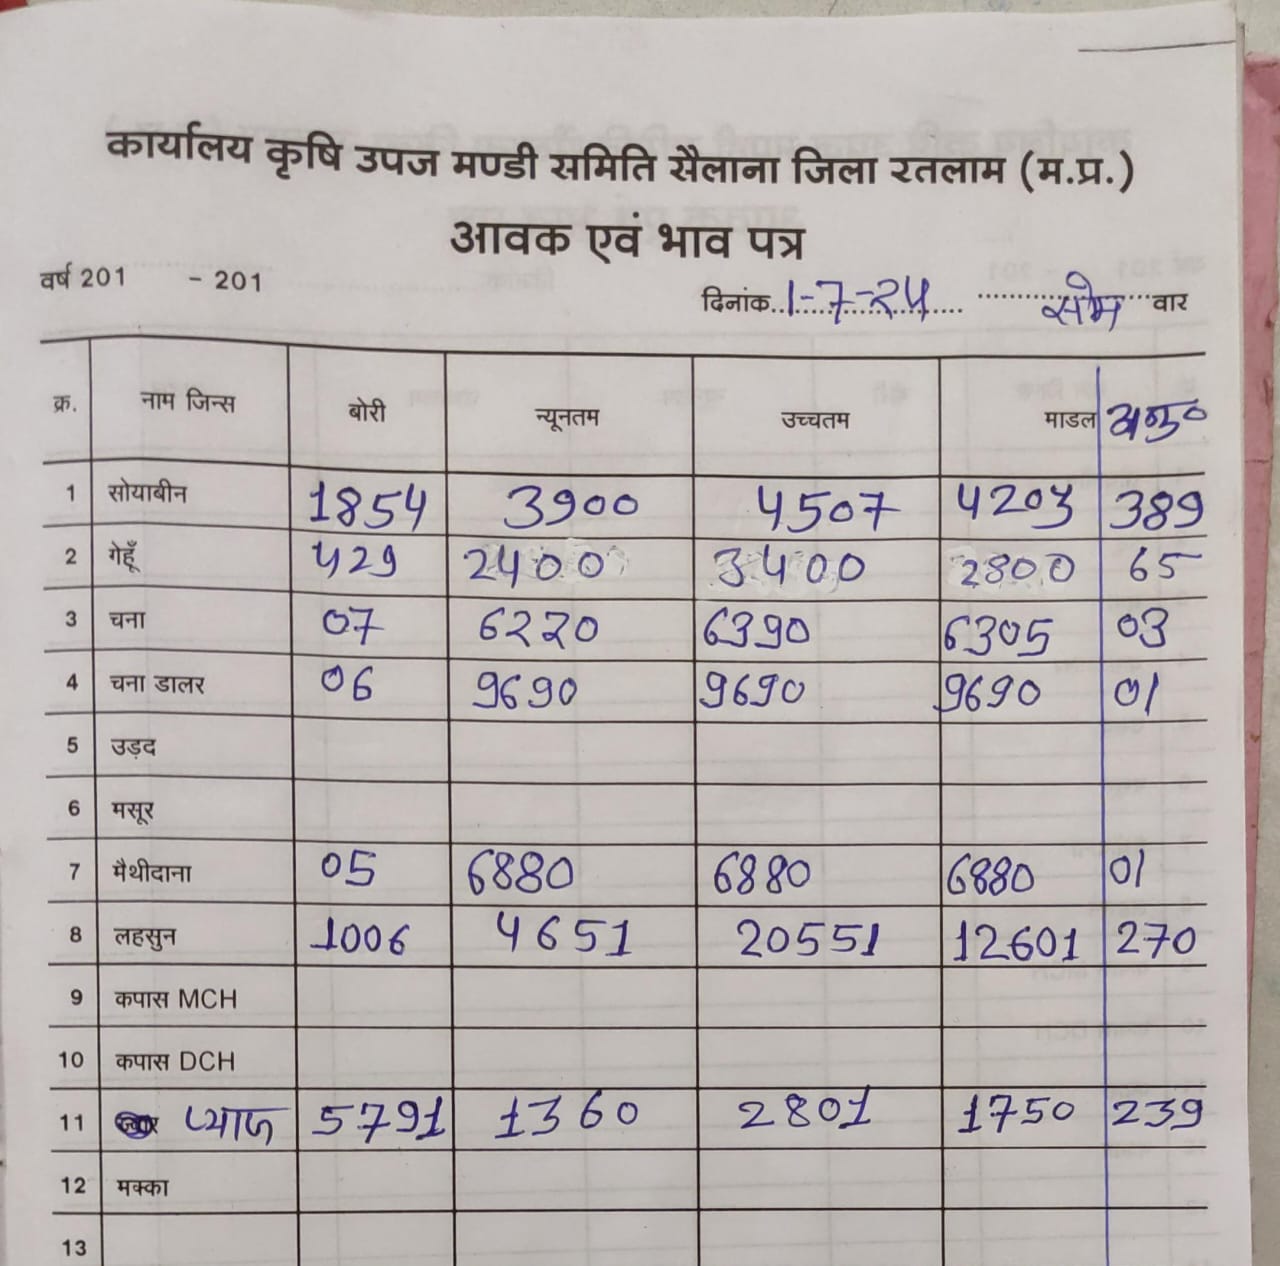 कार्यालय कृषि उपज मण्डी समिति सैलाना जिला रतलाम (म.प्र.)
आवक एवं भाव पत्र
वर्ष 201 - 201
दिनांक 1-7-24 सोम वार
क्र. नाम जिन्स बोरी न्यूनतम उच्चतम माडल अनु०
1 सोयाबीन 1854 3900 4507 4203 389
2 गेहूँ 429 2400 3400 2800 65
3 चना 07 6220 6390 6305 03
4 चना डालर 06 9690 9690 9690 01
5 उड़द
6 मसूर
7 मैथीदाना 05 6880 6880 6880 01
8 लहसुन 1006 4651 20551 12601 270
9 कपास MCH
10 कपास DCH
11 प्याज 5791 1360 2801 1750 239
12 मक्का
13